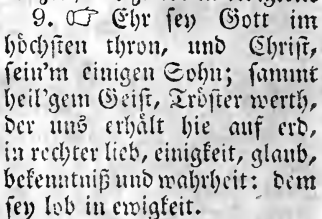 9. ☞ Ehr sey Gott im
höchsten thron, und Christ,
sein'm einigen Sohn; sammt
heil'gem Geist, Tröster werth,
der uns erhält hie auf erd,
in rechter lieb, einigkeit, glaub,
bekenntniß und wahrheit: dem
sey lob in ewigkeit.